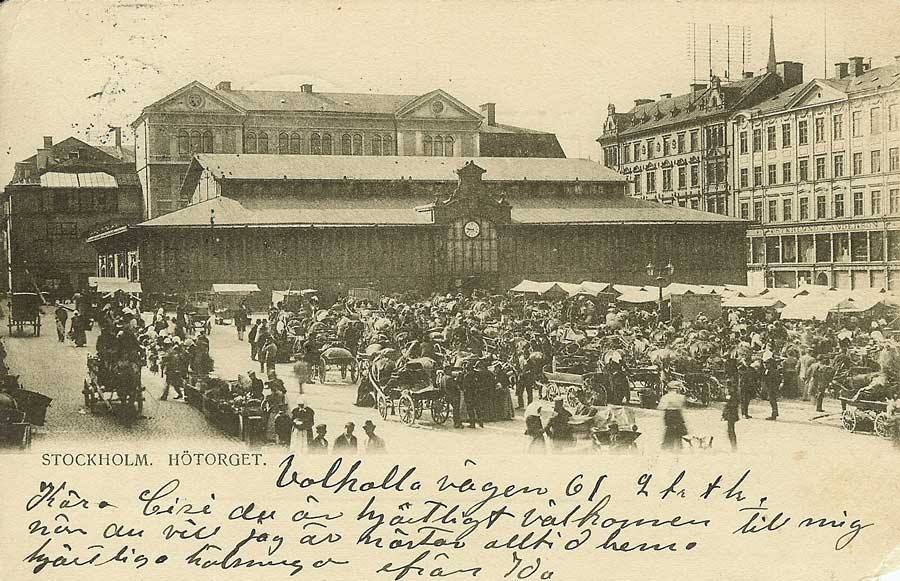 STOCKHOLM. HÖTORGET.
Valhalla vägen 61 2 tr t h.
Kära Cisi du är hjärtligt välkommen till mig
när du vill jag är nästan alltid hemma
hjärtliga hälsningar från Ida